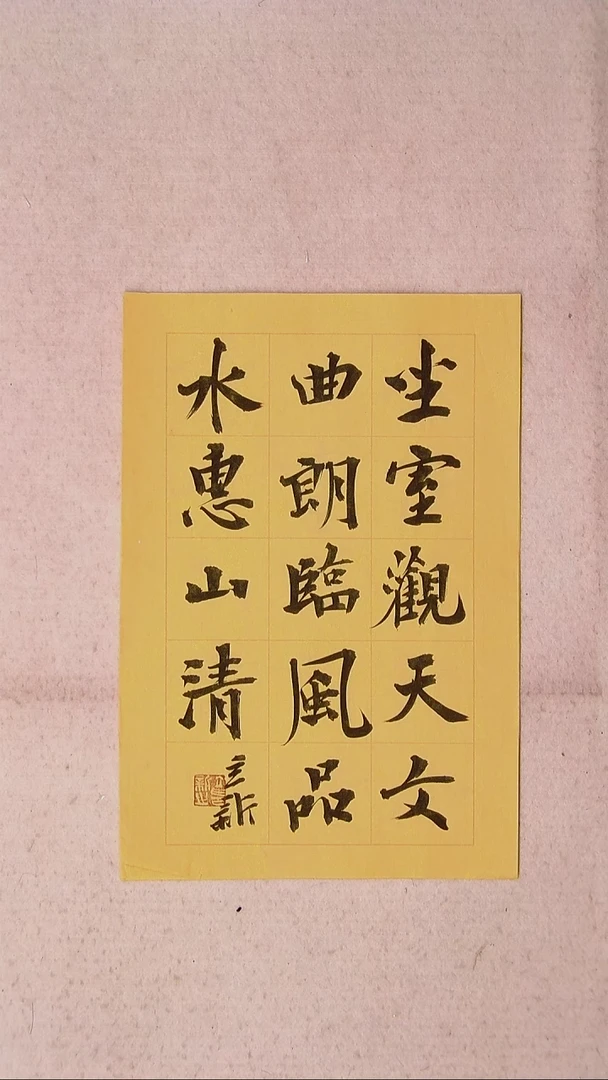 坐室觀天文
曲朗臨風品
水惠山清
立新